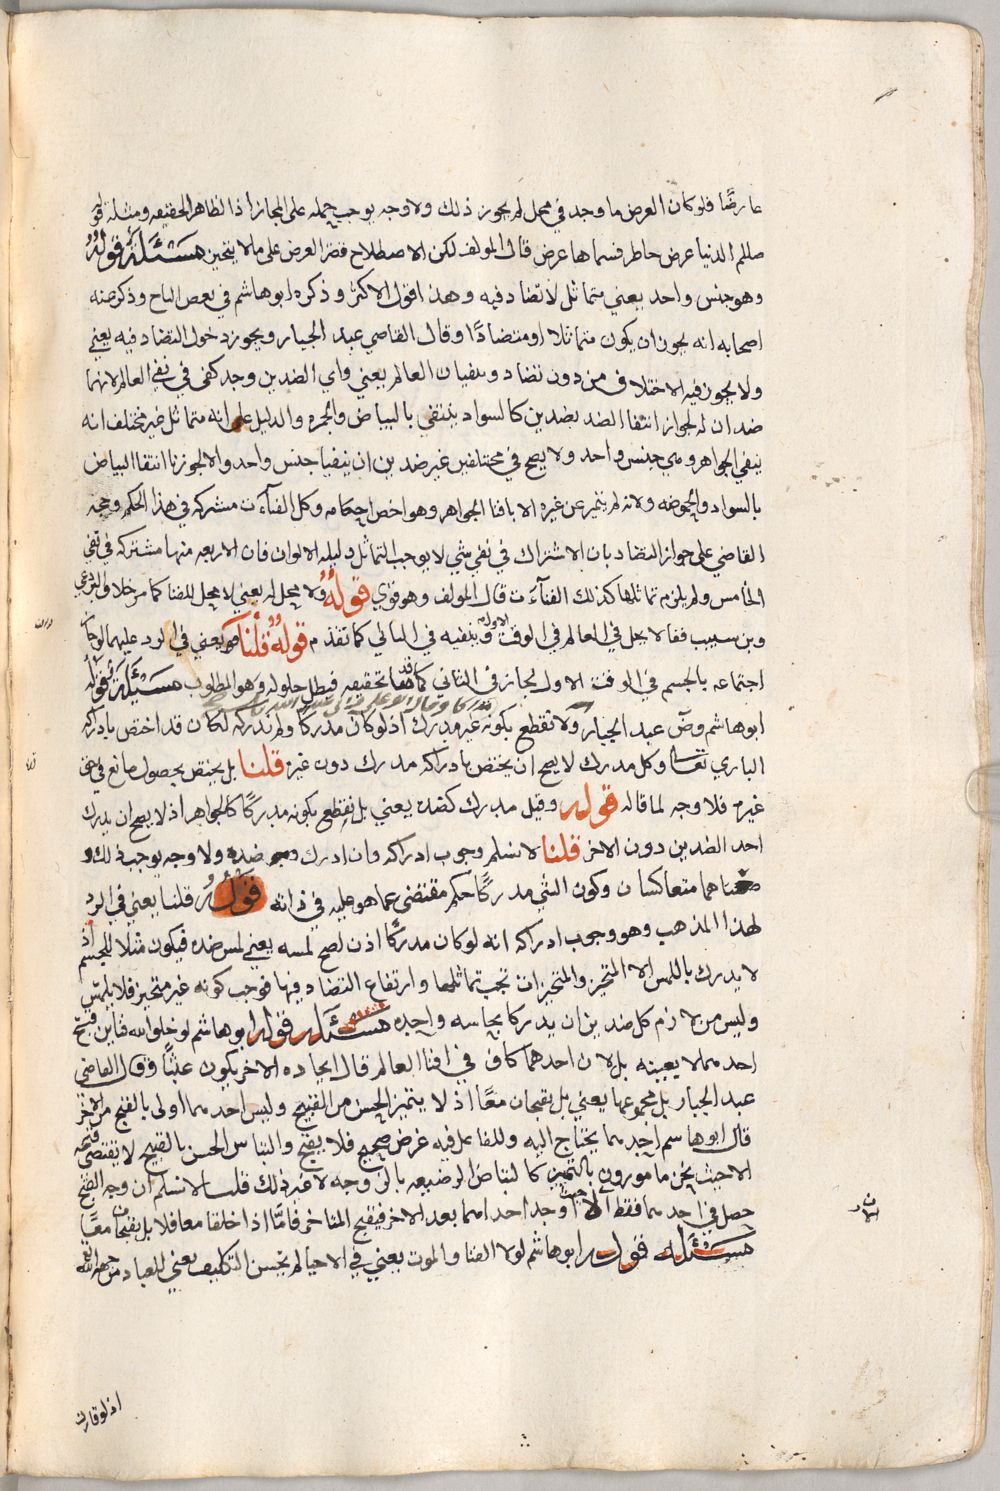 عارضًا فلو كان العرض ما وجد في محل لم يجوز ذلك ولا وجه يوجب حمله على المجاز اذ الظاهر الحقيقه ومثله قوله
صللم الدنيا عرض حاطر فسماها عرض قال المولف لكن الاصطلاح قصر العرض على ما لا يتحيز مسئلة قوله
وهو جنس واحد يعني متماثل لا تضاد فيه وهذا قول الاكثر وذكره ابو هاشم في بعض الباح وذكر عنه
اصحابه انه يجوز ان يكون متماثلا او متضادًا وقال القاضي عبد الجبار ويجوز دخول التضاد فيه يعني
ولا يجوز فيه الاختلاف من دون تضاد وينفيان العالم يعني واي الضدين وجد كفى في نفي العالم لانهما
ضدان له لجواز انتفا الضد بضدين كالسواد ينتفي بالبياض والحمره والدليل على انه متماثل غير مختلف انه
ينفي الجواهر وهي جنس واحد ولا يصح في مختلفين غير ضدين ان ينفيا جنس واحد والا لجوزنا انتفا البياض
بالسواد والحموضه ولانه لم يتميز عن غيره الا بافنا الجواهر وهو اخص احكامه وكل الفنآءت مشتركه في هذا الحكم وحجه
القاضي على جواز التضاد بان الاشتراك في نفي شي لا يوجب التماثل دليله الالوان فان الاربعه منها مشتركه في نفي
الخامس ولم يلزم تماثلها كذلك الفنآءت قال المولف وهو قوي قوله ولا محل له يعني لا محل للفنا كما مر خلاف البرذعي
وبن سبيب فقالا يحل في العالم في الوقت الاول وينفيه في الثاني كما تقدم قوله قلنا يعني في الرد عليهما لو جاز
اجتماعه بالجسم في الوقت الاول لجاز في الثاني كما قد تحقيقه فبطل حلوله وهو المطلوب مسئلة قوله
ابو هاشم وض عبد الجبار ولا نقطع بكونه غير مدرك اذ لو كان مدركا ولم ندركه لكان قد اختص بادراكه
الباري تعالى وكل مدرك لا يصح ان يختص بادراكه مدرك دون غيره قلنا بل يختص بحصول مانع في حق
غيره فلا وجه لما قاله قوله وقيل مدرك كضده يعني بل نقطع بكونه مدركًا كالجواهر اذ لا يصح ان يدرك
احد الضدين دون الاخر قلنا لا نسلم وجوب ادراكه وان ادرك ضده ولا وجه يوجب ذلك و
هما متعاكسان وكون الشي مدركًا حكم مقتضى عما هو عليه في ذاته قوله قلنا يعني في الرد
لهذا المذهب وهو وجوب ادراكه انه لو كان مدركًا اذن لصح لمسه يعني لمس ضده فيكون مثلا للجسم اذ
لا يدرك باللمس الا المتحيز والمتحيزات تجب تماثلها وارتفاع التضاد فيها فوجب كونه غير متحيز فلا يلمس
وليس من لازم كل ضدين ان يدركا بحاسه واحده مسئله قوله ابو هاشم لو خلق الله فنآين قبح
احدهما لا بعينه بل لان احدهما كاف في افنا العالم قال ايجاده الاخر يكون عبثًا وقال القاضي
عبد الجبار بل مجموعهما يعني بل يقبحان معًا اذ لا يتميز الحسن من القبيح وليس احدهما اولى بالقبح من الاخر
قال ابو هاشم احدهما يحتاج اليه وللفاعل فيه غرض صحيح فلا يقبح والتباس الحسن بالقبيح لا يقتضي قبحه
الا حيث نحن مامورون بالتمييز كالتباس الرضيعه بالزوجه لا غير ذلك قلنا لا نسلم ان وجه القبح
حصل في احدهما فقط الا حيث وجد احدهما بعد الاخر فيقبح المتاخر فاما اذا خلقا معا فلا بل يقبحان معًا
مسئله قوله ابو هاشم لولا الفنا والموت يعني في الاحيا لم يحسن التكليف يعني للعباد من جهه الله
اذ لو قارن